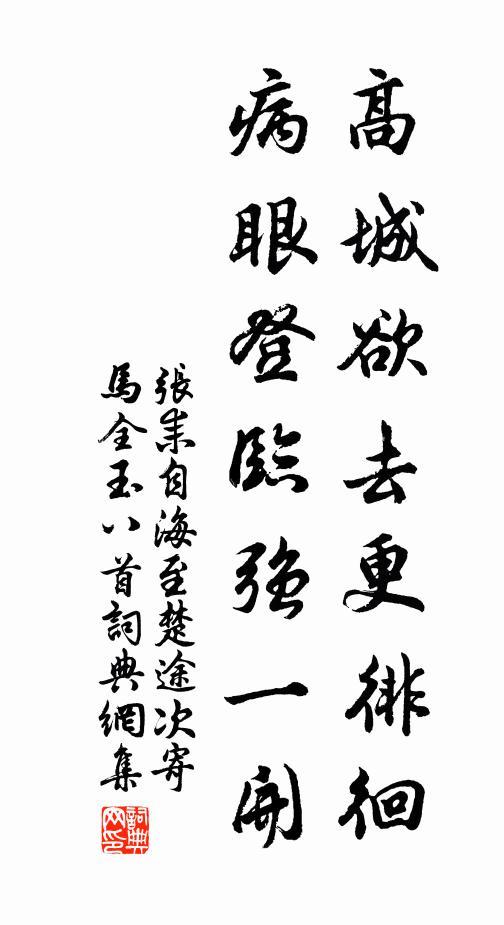 高城欲去更徘徊
病眼登臨強一開
張耒自海至楚途次寄
馬全玉八首詞典網集
詞典
网印